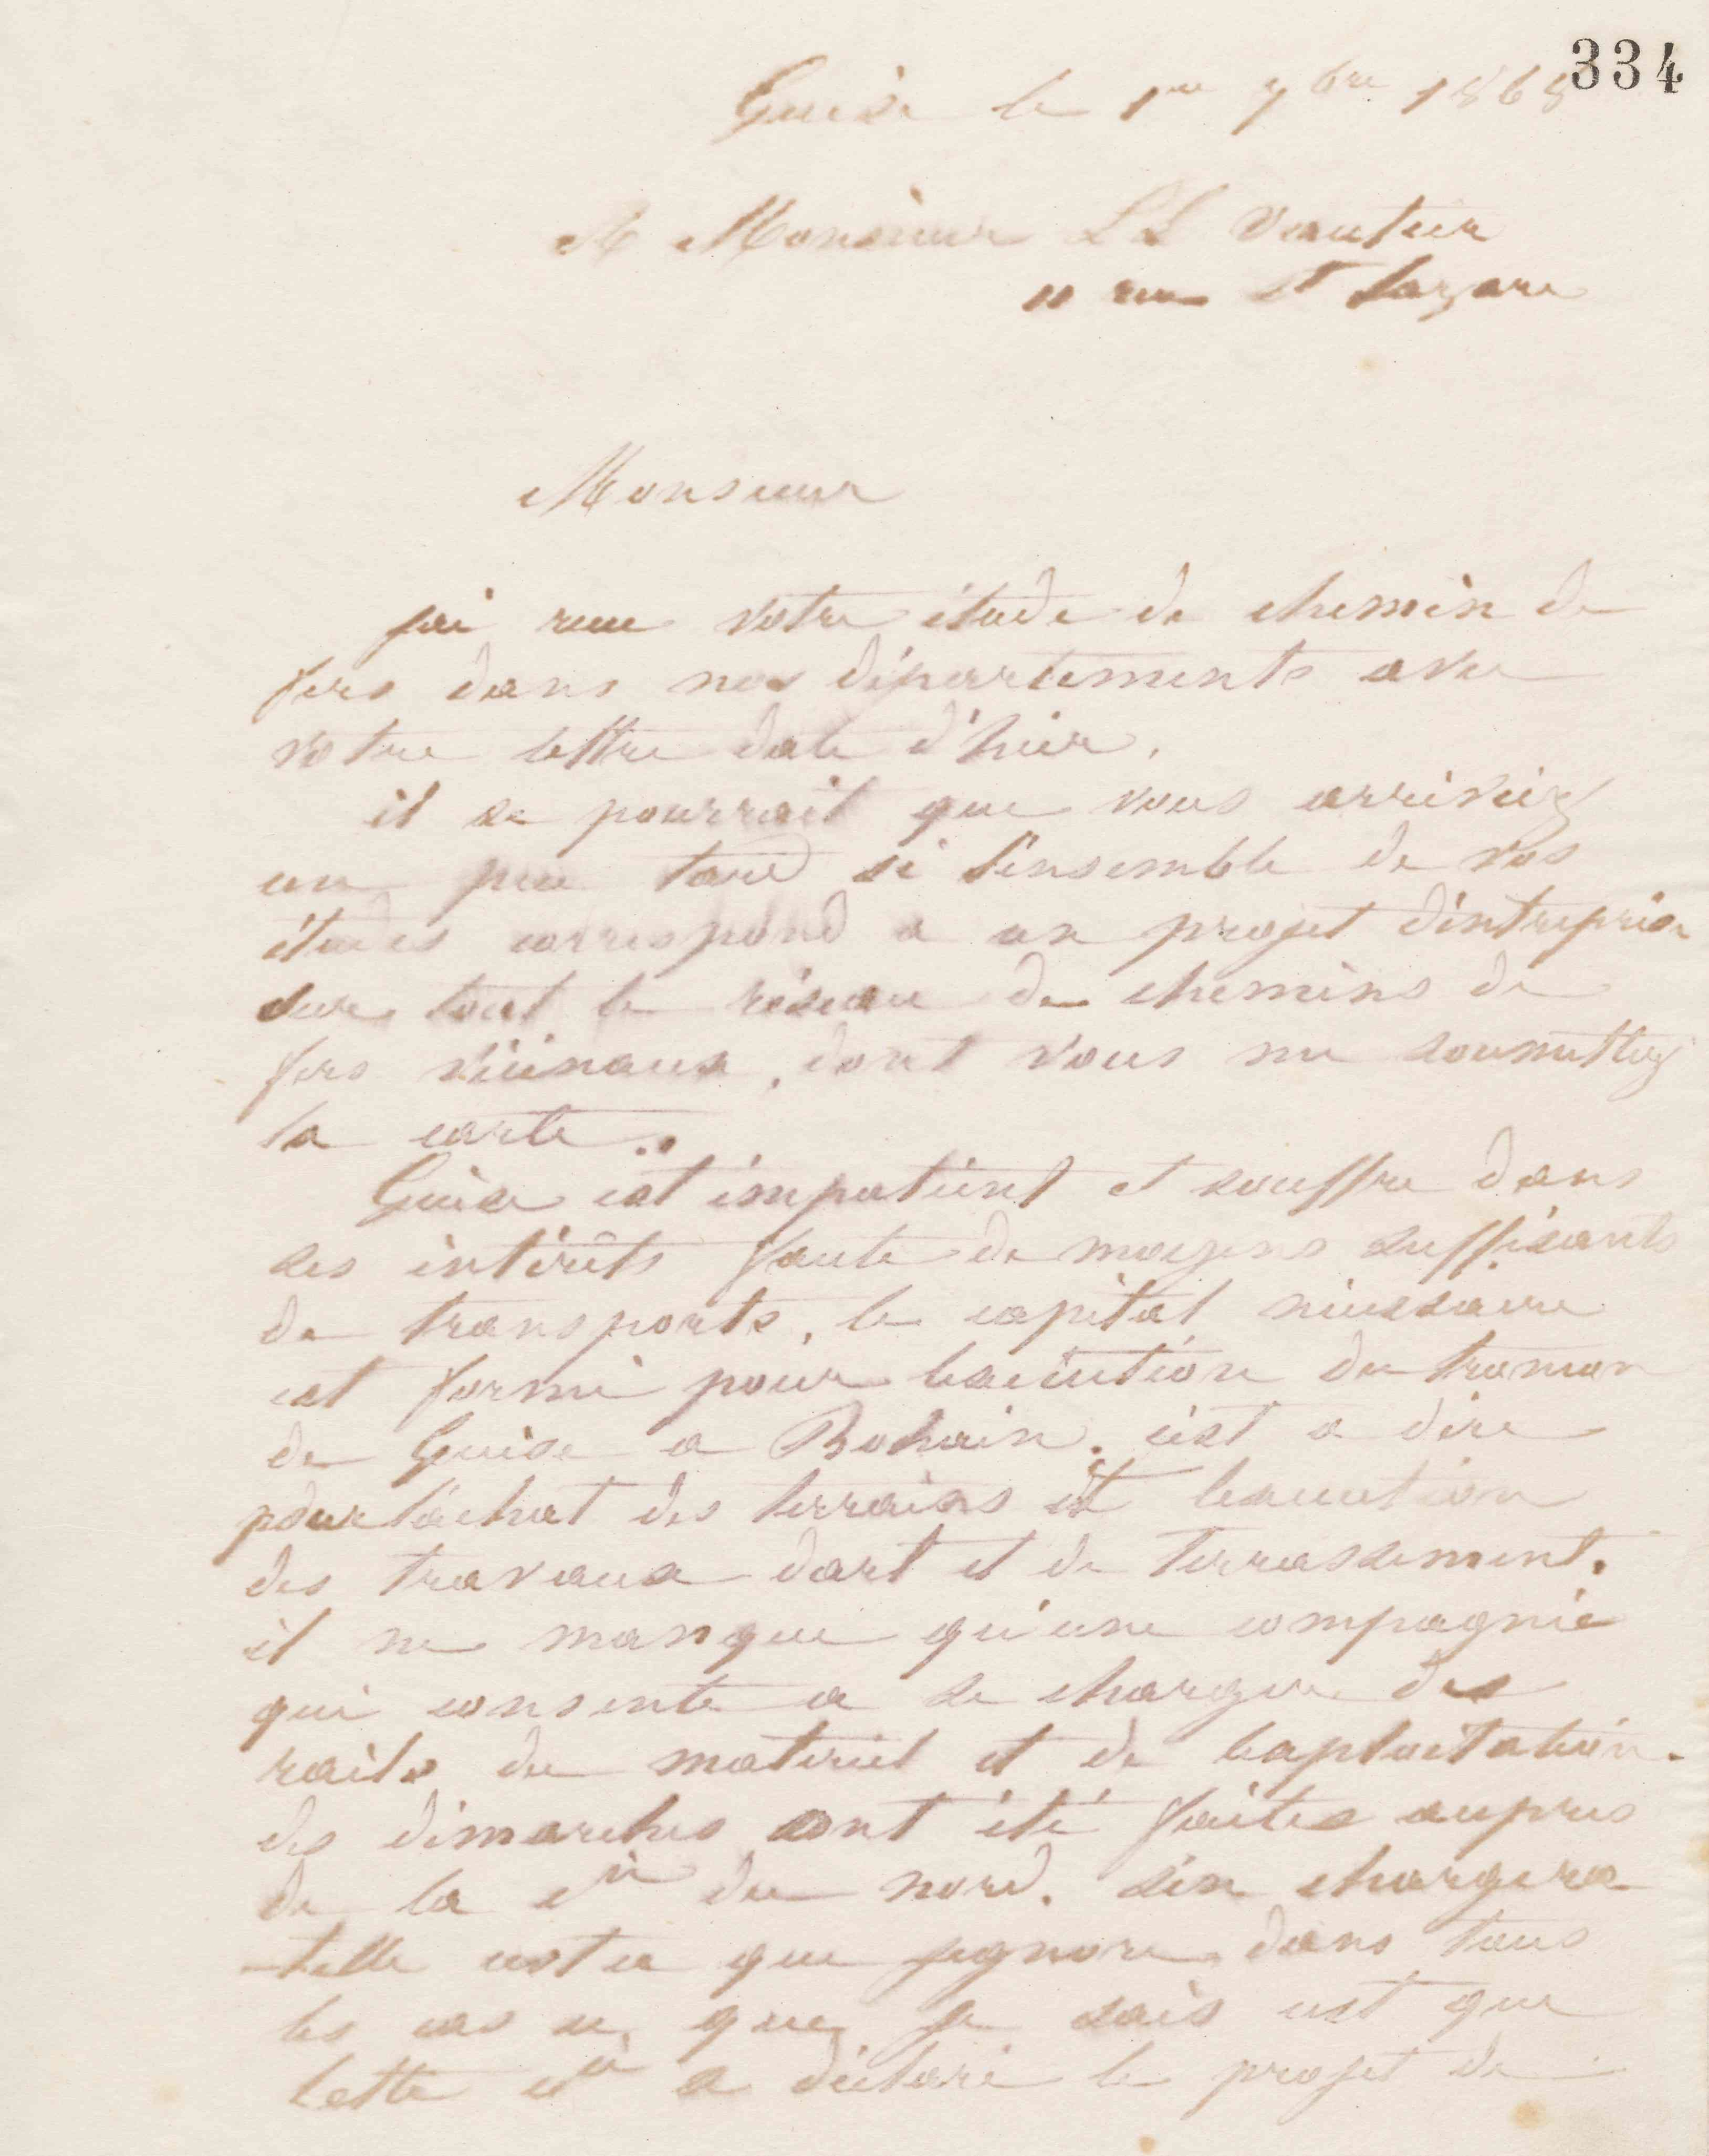 334
Guise le 1er 7bre 1865
A Monsieur LL Vauthier
11 rue St Lazare
Monsieur
jai recu votre étude de chemin de
fers dans nos départements avec
votre lettre date d'hier.
il se pourrait que vous arriviez
un peu tard si l'ensemble de vos
études correspond a un projet d'intreprise
sur tout le réseau de chemins de
fers vicinaux, dont vous me soumettez
la carte.
Guise est impatient et souffre dans
ses intérêts faute de moyens suffisants
de transports, le capital nécessaire
est formé pour lexécution du troncon
de Guise a Bohain. cest a dire
pour lachat des terrains et lexecution
des travaux dart et de terrassement.
il ne manque qu'une compagnie
qui consente a se charger des
rails du matériel et de lexploitation.
des démarches ont été faites aupres
de la cie du nord. s'en chargera
-telle cest ce que jignore, dans tous
les cas ce que je sais cest que
cette cie a déclaré le projet de